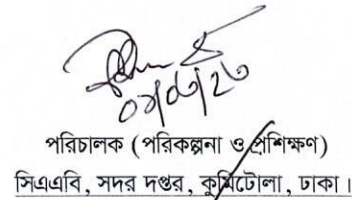 পরিচালক (পরিকল্পনা ও প্রশিক্ষণ)
সিএএবি, সদর দপ্তর, কুর্মিটোলা, ঢাকা।